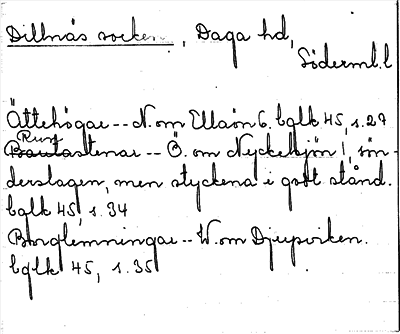 Dillnäs socken, Daga hd,
Söderml. l
Ättehögar -- N. om Ellaån 6. bglk 45, s. 27
Run
Bautastenar -- Ö. om Nyckelsjön 1, sön-
derslagen, men styckena i gott stånd.
bglk 45, s. 34
Borglemningar -- V. om Djupviken.
bglk 45, s. 35